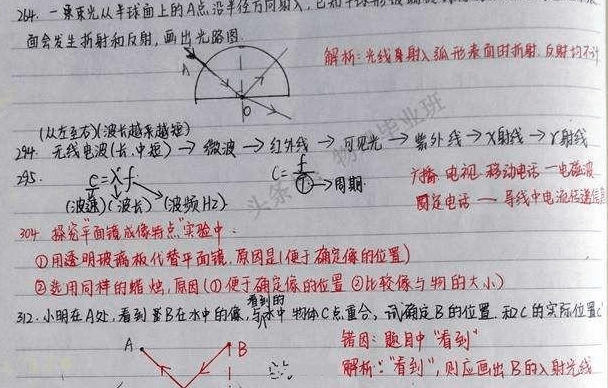 264. 一束束光从半球面上的A点沿半径方向射入,已知半球形玻璃
面会发生折射和反射,画出光路图.
解析:光线身射入弧形表面田折射.反射均不计
A
O
(从左至右)(波长越来越短)
294. 无线电波(长.中.短) → 微波 → 红外线 → 可见光 → 紫外线 → X射线 → γ射线
295. c=λf
C=
f
T → 周期
广播.电视.移动电话 — 电磁波
固定电话 — 导线中电流传递信息
(波速)(波长)(波频HZ)
304. 探究"平面镜成像特点"实验中:
①用透明玻璃板代替平面镜.原因是(便于确定像的位置)
②选用同样的蜡烛,原因(①便于确定像的位置 ②比较像与物的大小)
312. 小明在A处,看到星B在水中的像,与看到的水中物体C点重合,试确定B的位置.和C的实际位置C'
错因:题目中"看到"
A
B
解析:"看到",则应画出B的入射光线